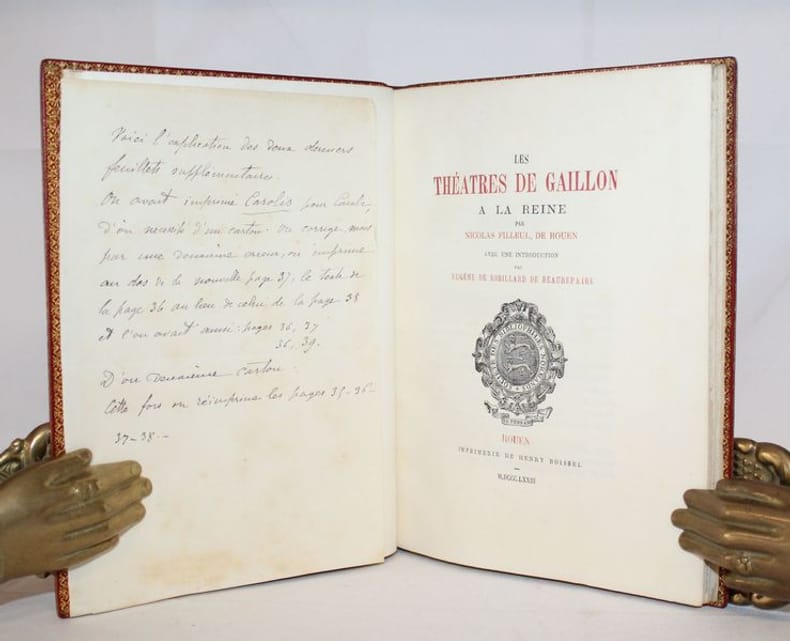 Voici l'explication des deux derniers
feuillets supplémentaires.
On avait imprimé Carolis pour
d'où necésité d'un carton. On corrige, mais
par une deuxième erreur, on imprime
au dos de la nouvelle page 37, le texte de
la page 36 au lieu de celui de la page 38
et l'on avait ainsi: pages 36, 37
36, 39.
D'où deuxième carton.
Cette fois on réimprime les pages 35-36-
37-38.-
LES
THÉATRES DE GAILLON
A LA REINE
PAR
NICOLAS FILLEUL, DE ROUEN
AVEC UNE INTRODUCTION
PAR
EUGÈNE DE ROBILLARD DE BEAUREPAIRE
ROUEN
IMPRIMERIE DE HENRY BOISSEL
M.DCCC.LXXIII